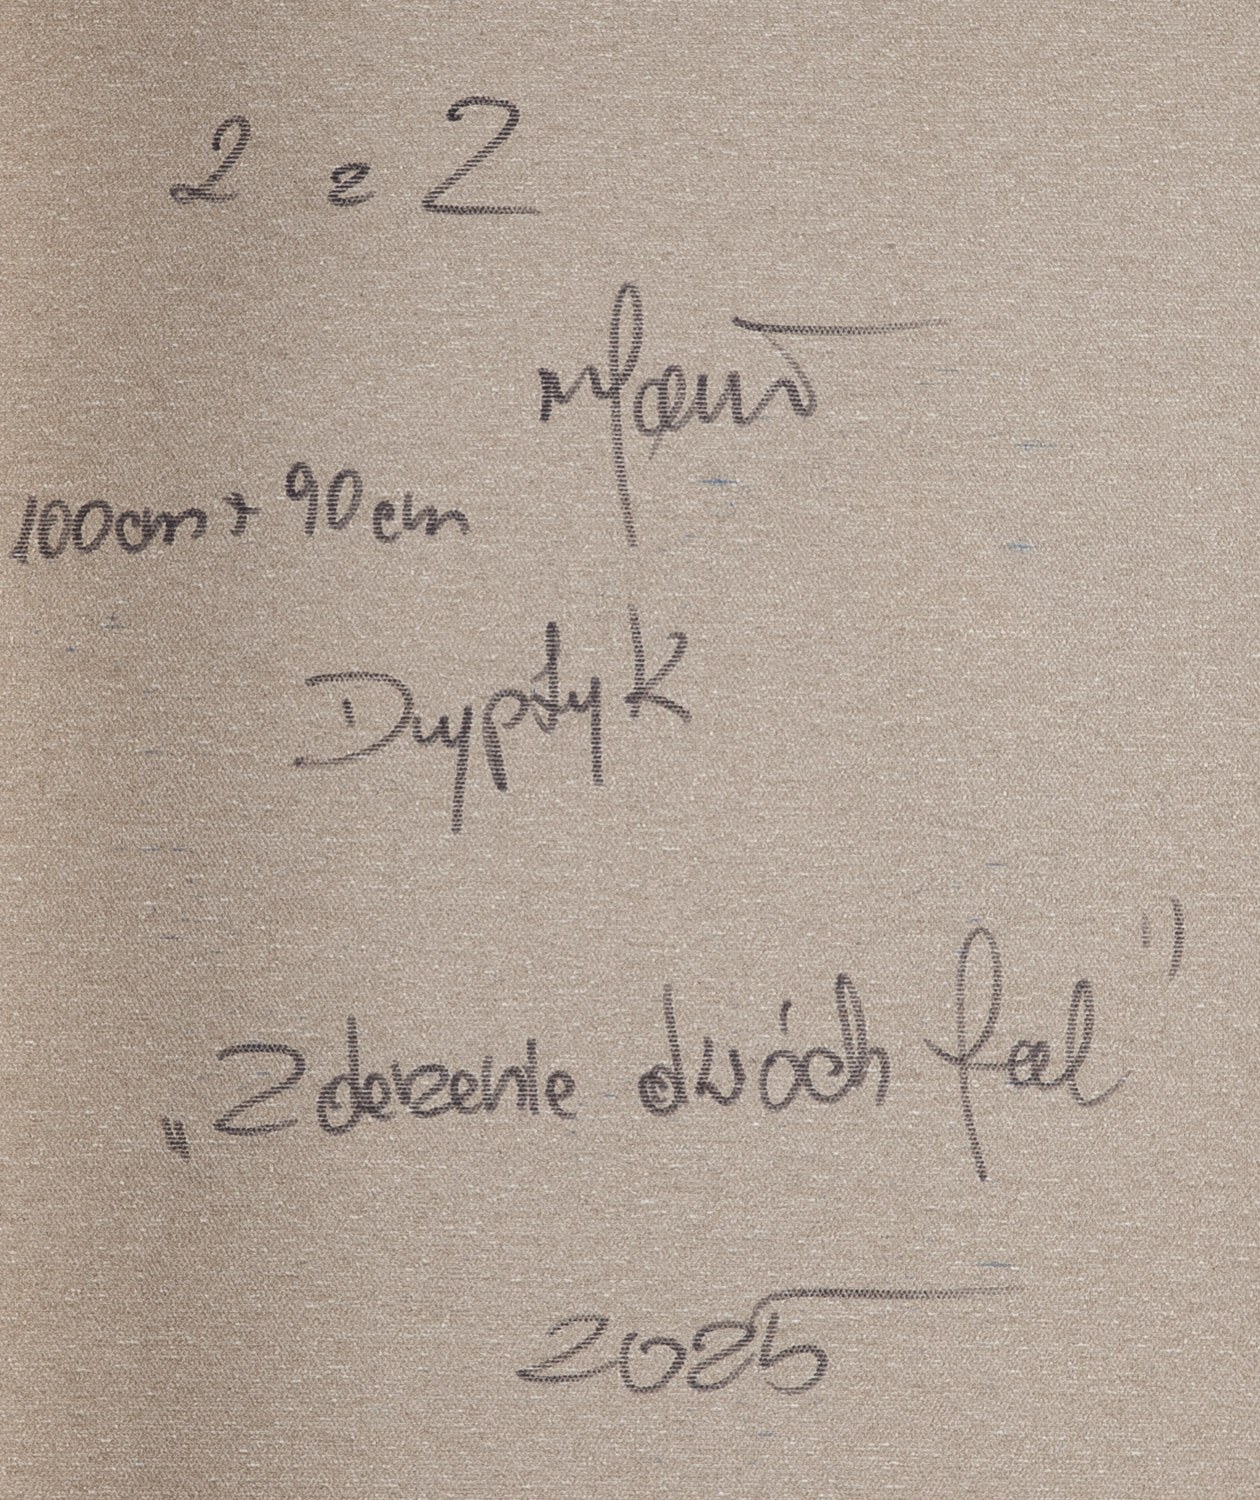 2 z 2
100cm x 90cm
Dyptyk
„Zderzenie dwóch fal”
2025